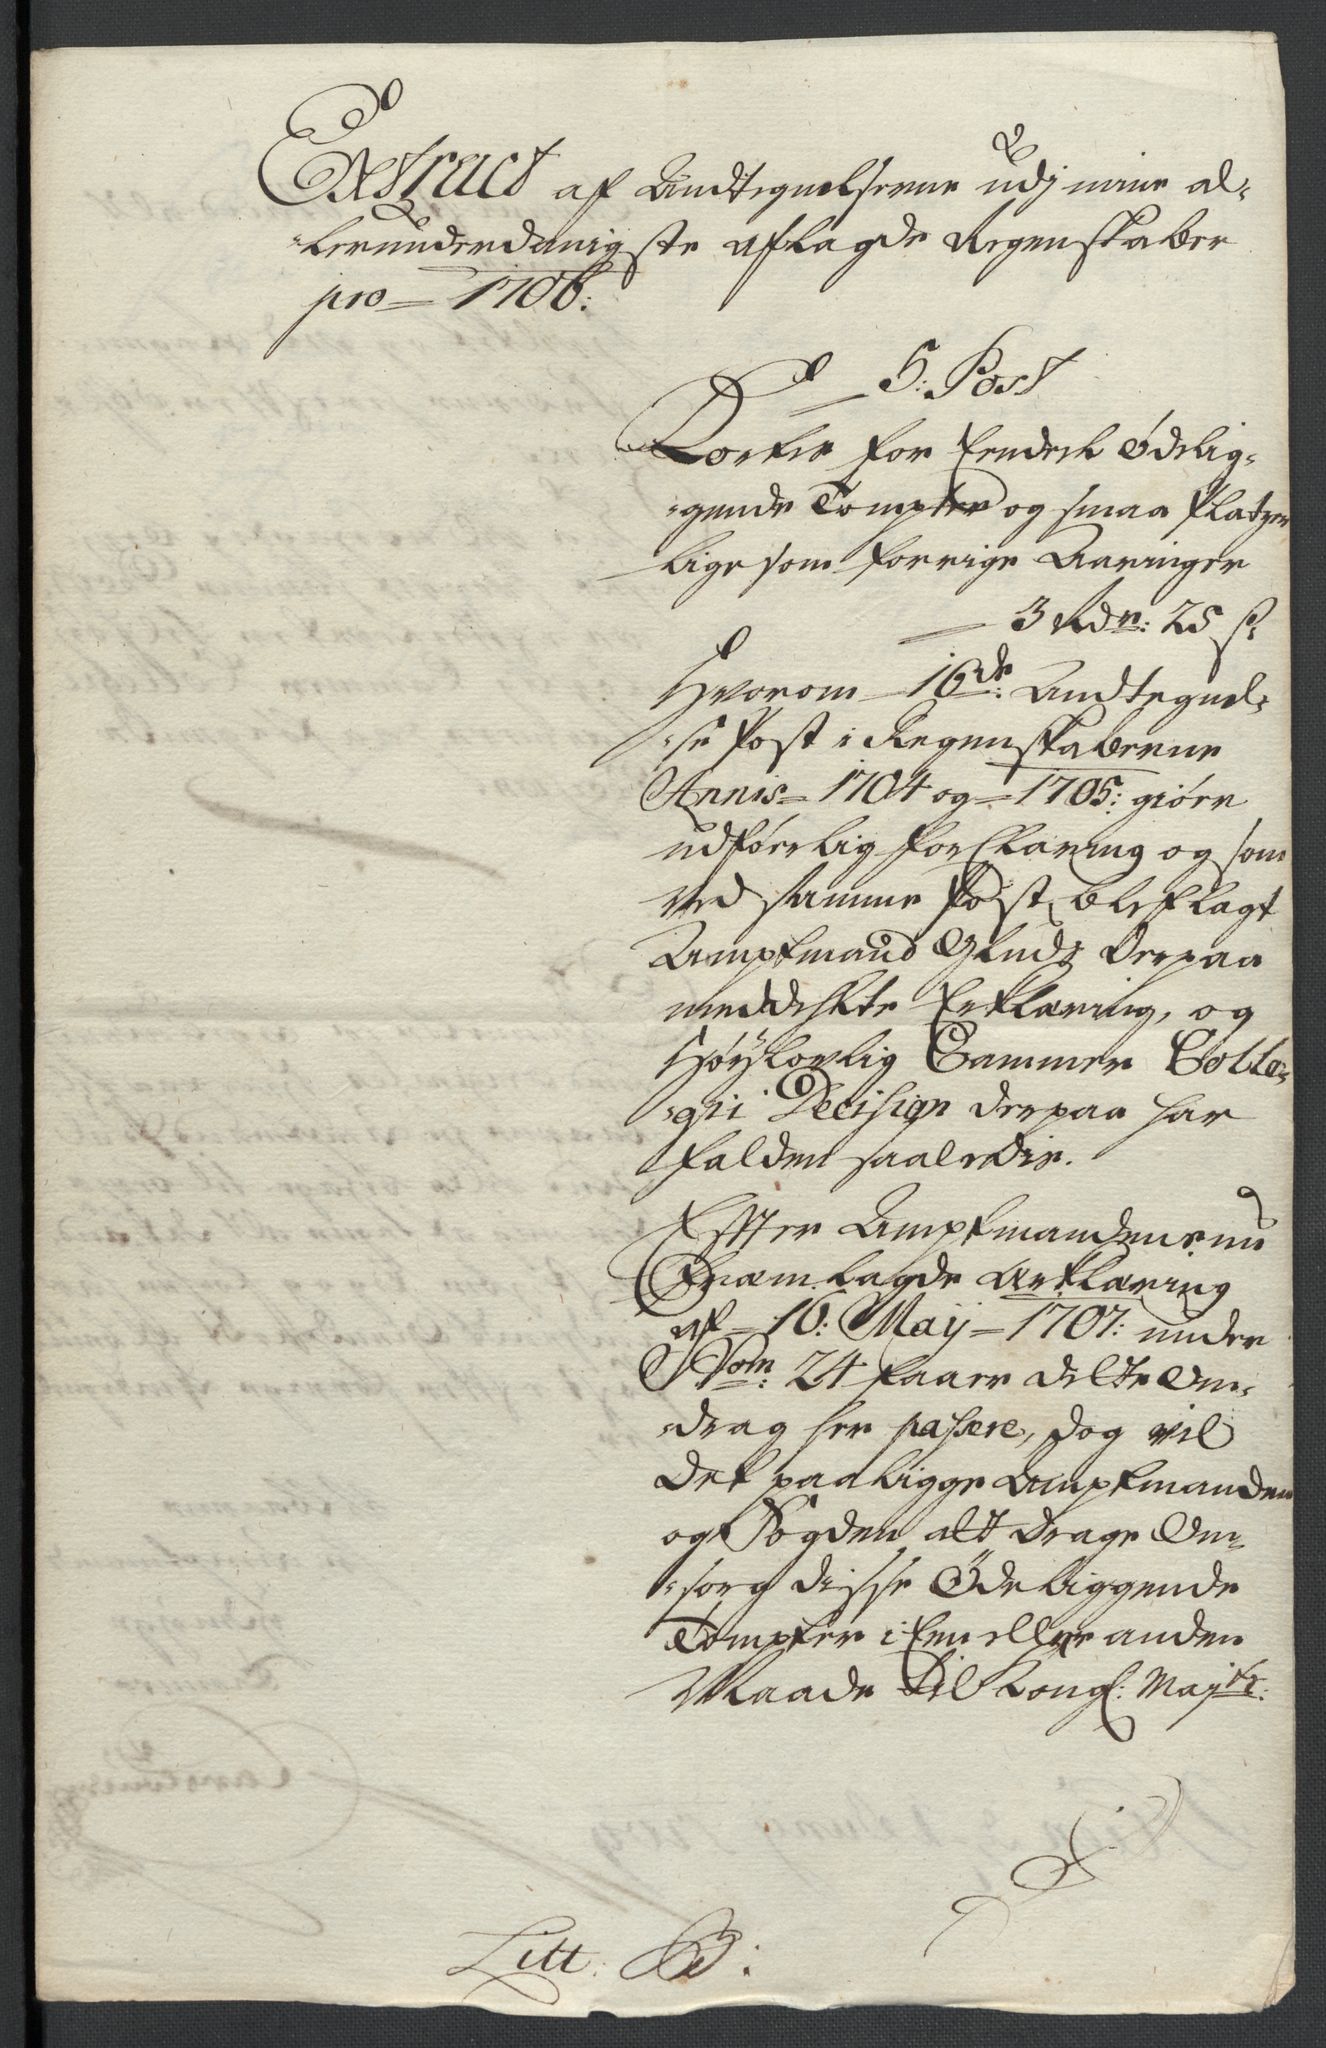 Extract af Andtegnelserne udj mine al-
lerunderdanigste aflagde Regenskaber
pro 1706:
5: Post
Korter for Eendeel ødelig-
gende Tompter og smaa Pladzer
lige som forrige Aaringer
3 Rdr: 25 s:
Hvorom 16de: Andtegnel-
se Post i Regenskaberne
Annis 1704 og 1705: giøre
udførlig forklaring og som
ved samme Post, blef lagt
Amptmand Gluds derpaa
meddeelte Erklæring, og
Høylovlig Cammer Colle-
gii Decision derpaa har
falden saaledis.
Effter Amptmandens nu
fræmlagde Erklæring
af 16: Maij 1707: under
Nom: 24 faaer dette Om-
drag her passere, dog vil
det paaligge Amptmanden
og Fogden alt drage Om-
sorg disse Ødeliggende
Tompter i Een eller anden
Maade til Kongl: Mayts:
Litt: B: